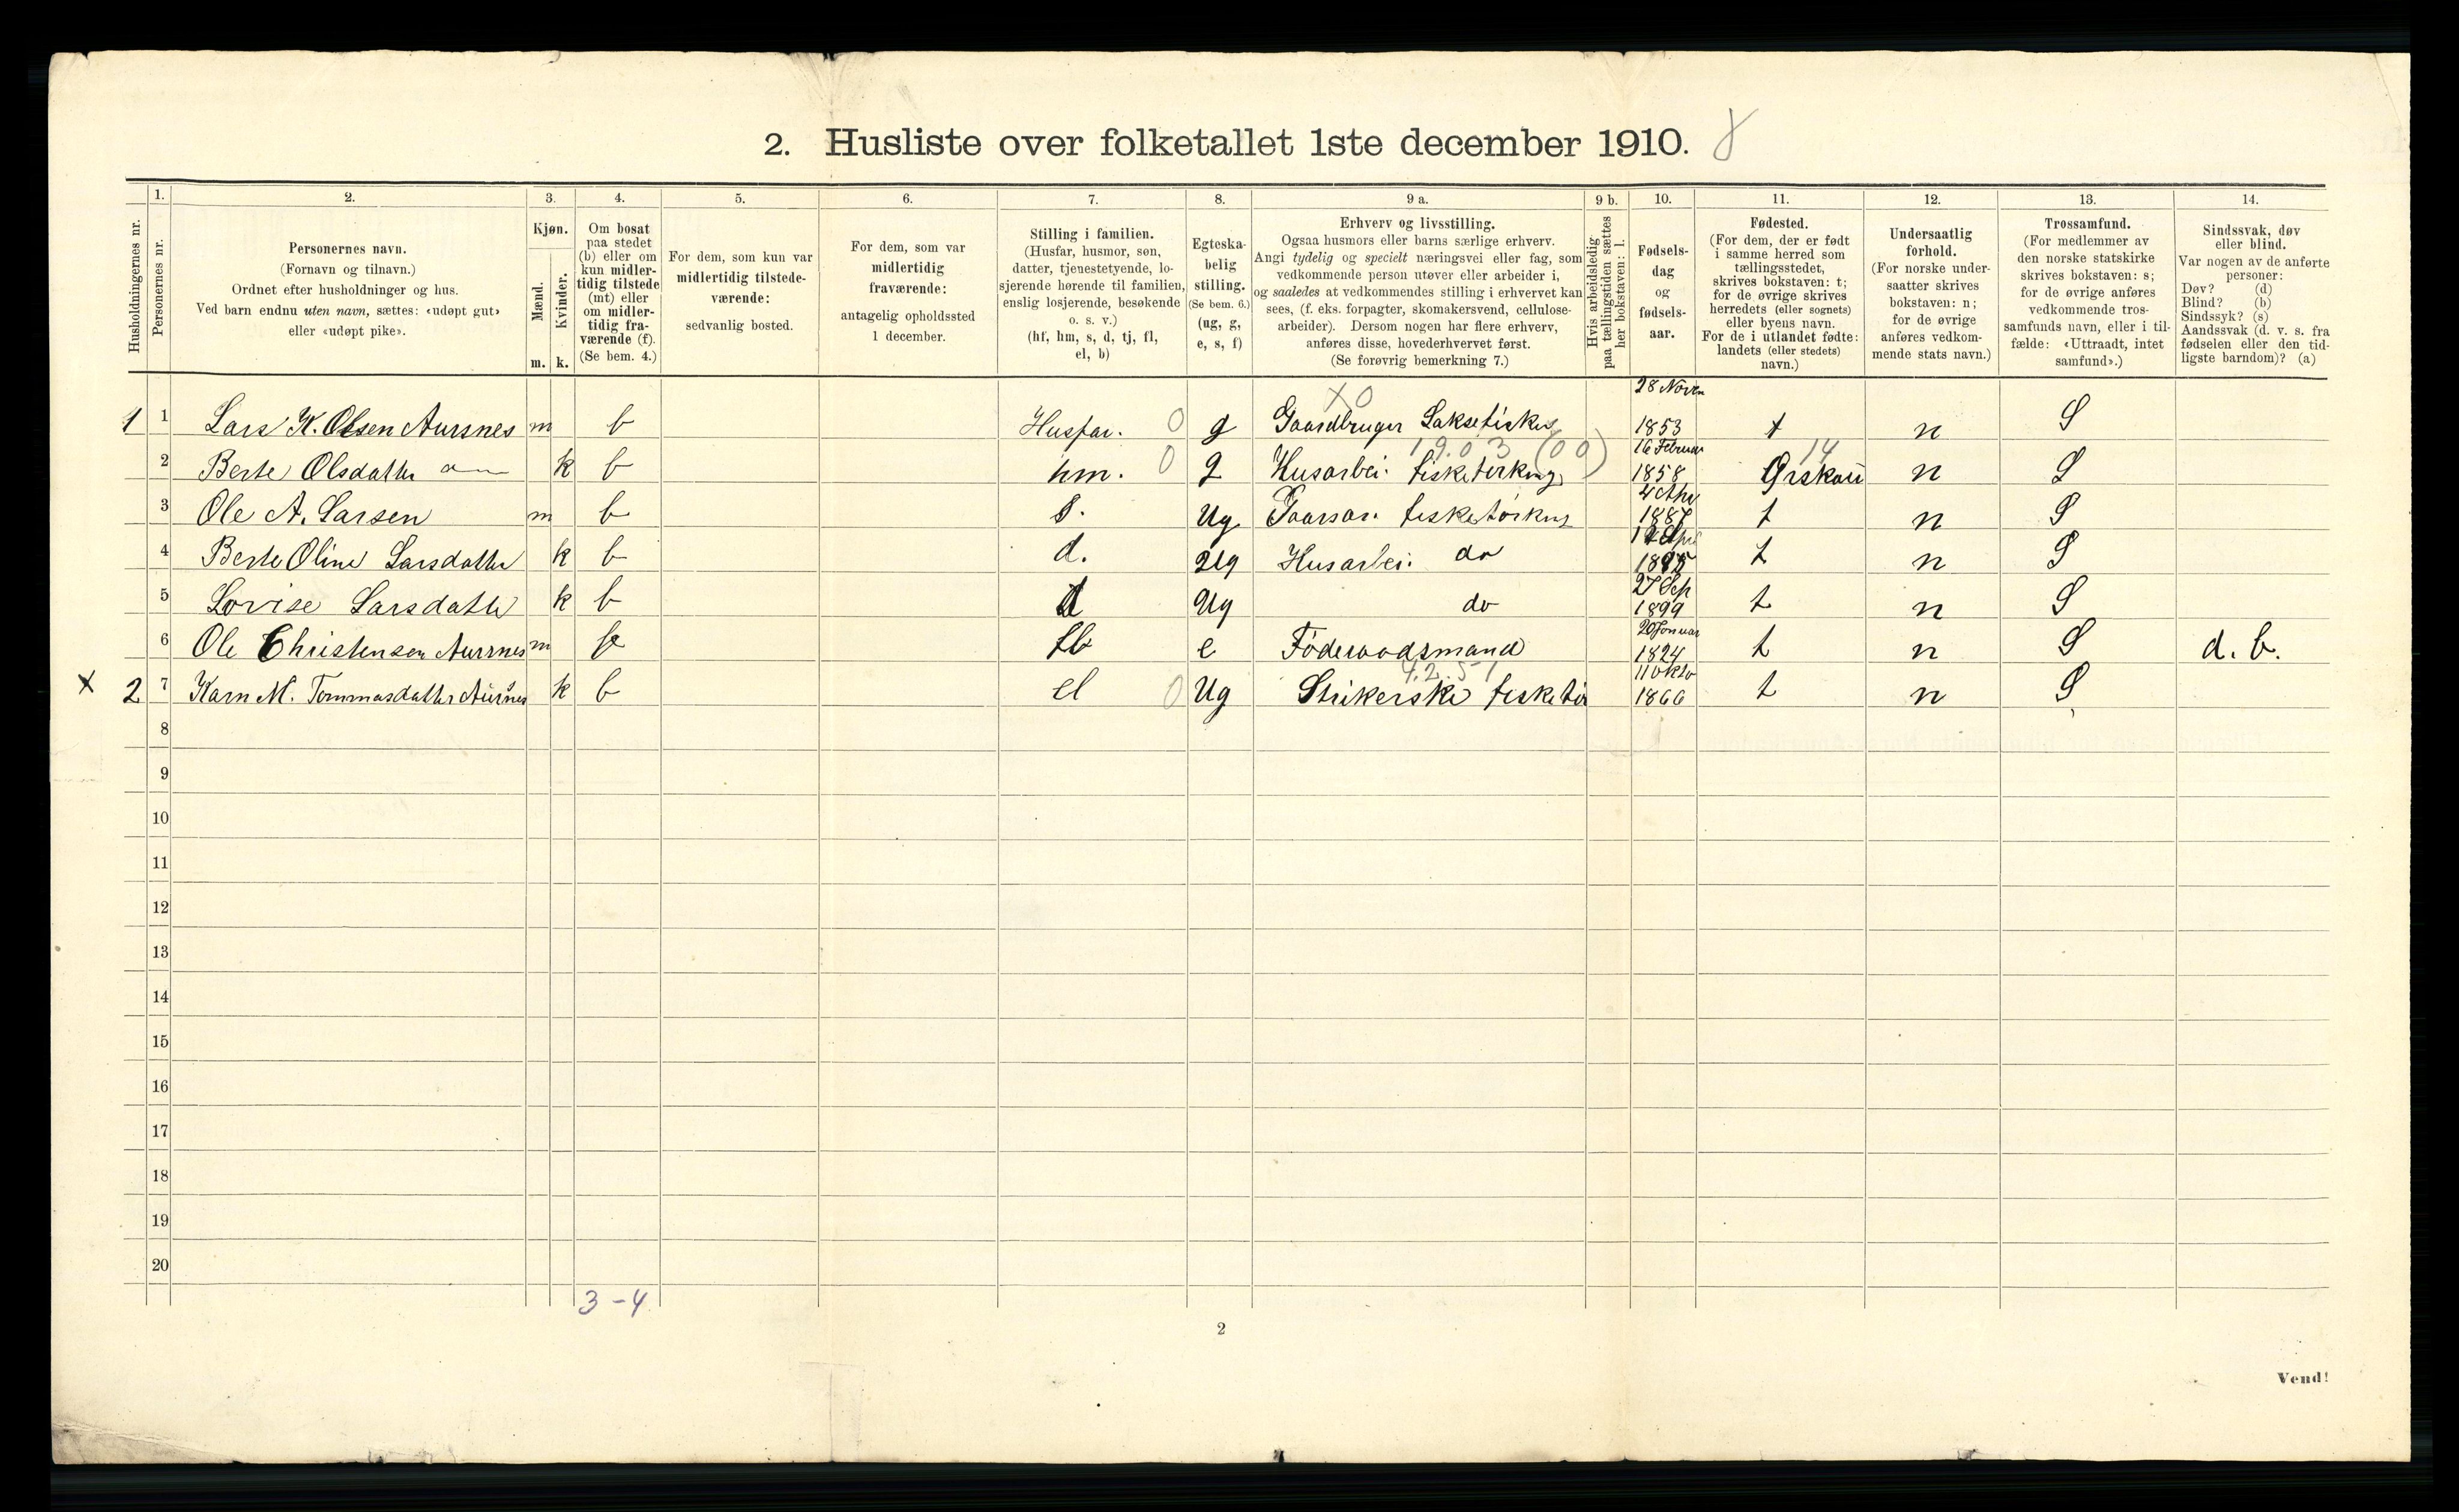 2. Husliste over folketallet 1ste december 1910. 8
Husholdningernes nr.
1.
Personernes nr.
2.
Personernes navn.
(Fornavn og tilnavn.)
Ordnet efter husholdninger og hus.
Ved barn endnu uten navn, sættes: «udøpt gut»
eller «udøpt pike».
3.
Kjøn.
Mænd.
Kvinder.
m. k.
4.
Om bosat
paa stedet
(b) eller om
kun midler-
tidig tilstede
(mt) eller
om midler-
tidig fra-
værende (f).
(Se bem. 4.)
5.
For dem, som kun var
midlertidig tilstede-
værende:
sedvanlig bosted.
6.
For dem, som var
midlertidig
fraværende:
antagelig opholdssted
1 december.
7.
Stilling i familien.
(Husfar, husmor, søn,
datter, tjenestetyende, lo-
sjerende hørende til familien,
enslig losjerende, besøkende
o. s. v.)
(hf, hm, s, d, tj, fl,
el, b)
8.
Egteska-
belig
stilling.
(Se bem. 6.)
(ug, g,
e, s, f)
9 a.
Erhverv og livsstilling.
Ogsaa husmors eller barns særlige erhverv.
Angi tydelig og specielt næringsvei eller fag, som
vedkommende person utøver eller arbeider i,
og saaledes at vedkommendes stilling i erhvervet kan
sees, (f. eks. forpagter, skomakersvend, cellulose-
arbeider). Dersom nogen har flere erhverv,
anføres disse, hovederhvervet først.
(Se forøvrig bemerkning 7.)
9 b.
Hvis arbeidsledig
paa tællingstiden sættes
her bokstaven: l.
10.
Fødsels-
dag
og
fødsels-
aar.
11.
Fødested.
(For dem, der er født
i samme herred som
tællingsstedet,
skrives bokstaven: t;
for de øvrige skrives
herredets (eller sognets)
eller byens navn.
For de i utlandet fødte:
landets (eller stedets)
navn.)
12.
Undersaatlig
forhold.
(For norske under-
saatter skrives
bokstaven: n;
for de øvrige
anføres vedkom-
mende stats navn.)
13.
Trossamfund.
(For medlemmer av
den norske statskirke
skrives bokstaven: s;
for de øvrige anføres
vedkommende tros-
samfunds navn, eller i til-
fælde: «Uttraadt, intet
samfund».)
14.
Sindssvak, døv
eller blind.
Var nogen av de anførte
personer:
Døv? (d)
Blind? (b)
Sindssyk? (s)
Aandssvak (d. v. s. fra
fødselen eller den tid-
ligste barndom)? (a)
X0
28 Novm
1 1 Lars K. Olsen Aursnes m b Husfar. 0 g Gaardbruger Laksefisker 1853 t n S
1 9. 0 3 (00) 16 Februar 14
2 Berte Olsdatter k b hm. 0 g Husarbei. fisketørking 1858 Ørskau n S
4 Apr
3 Ole A. Larsen m b S. Ug fisketørking 1887 t n S
4 Berte Oline Larsdatter k b d. Ug Husarbei. do t n S
27 Sep
5 Lovise Larsdatter k b d Ug do 1899 t n S
20 Januar
6 Ole Christensen Aursnes m b e Föderaadsmand 1824 t n S d. b.
4.2.51 11 Okto
X 2 7 Karn M. Tommasdatter Aursnes k b el 0 Ug Strikerske fisketör 1866 t n S
8
9
10
11
12
13
14
15
16
17
18
19
20
3 - 4
2
Vend!